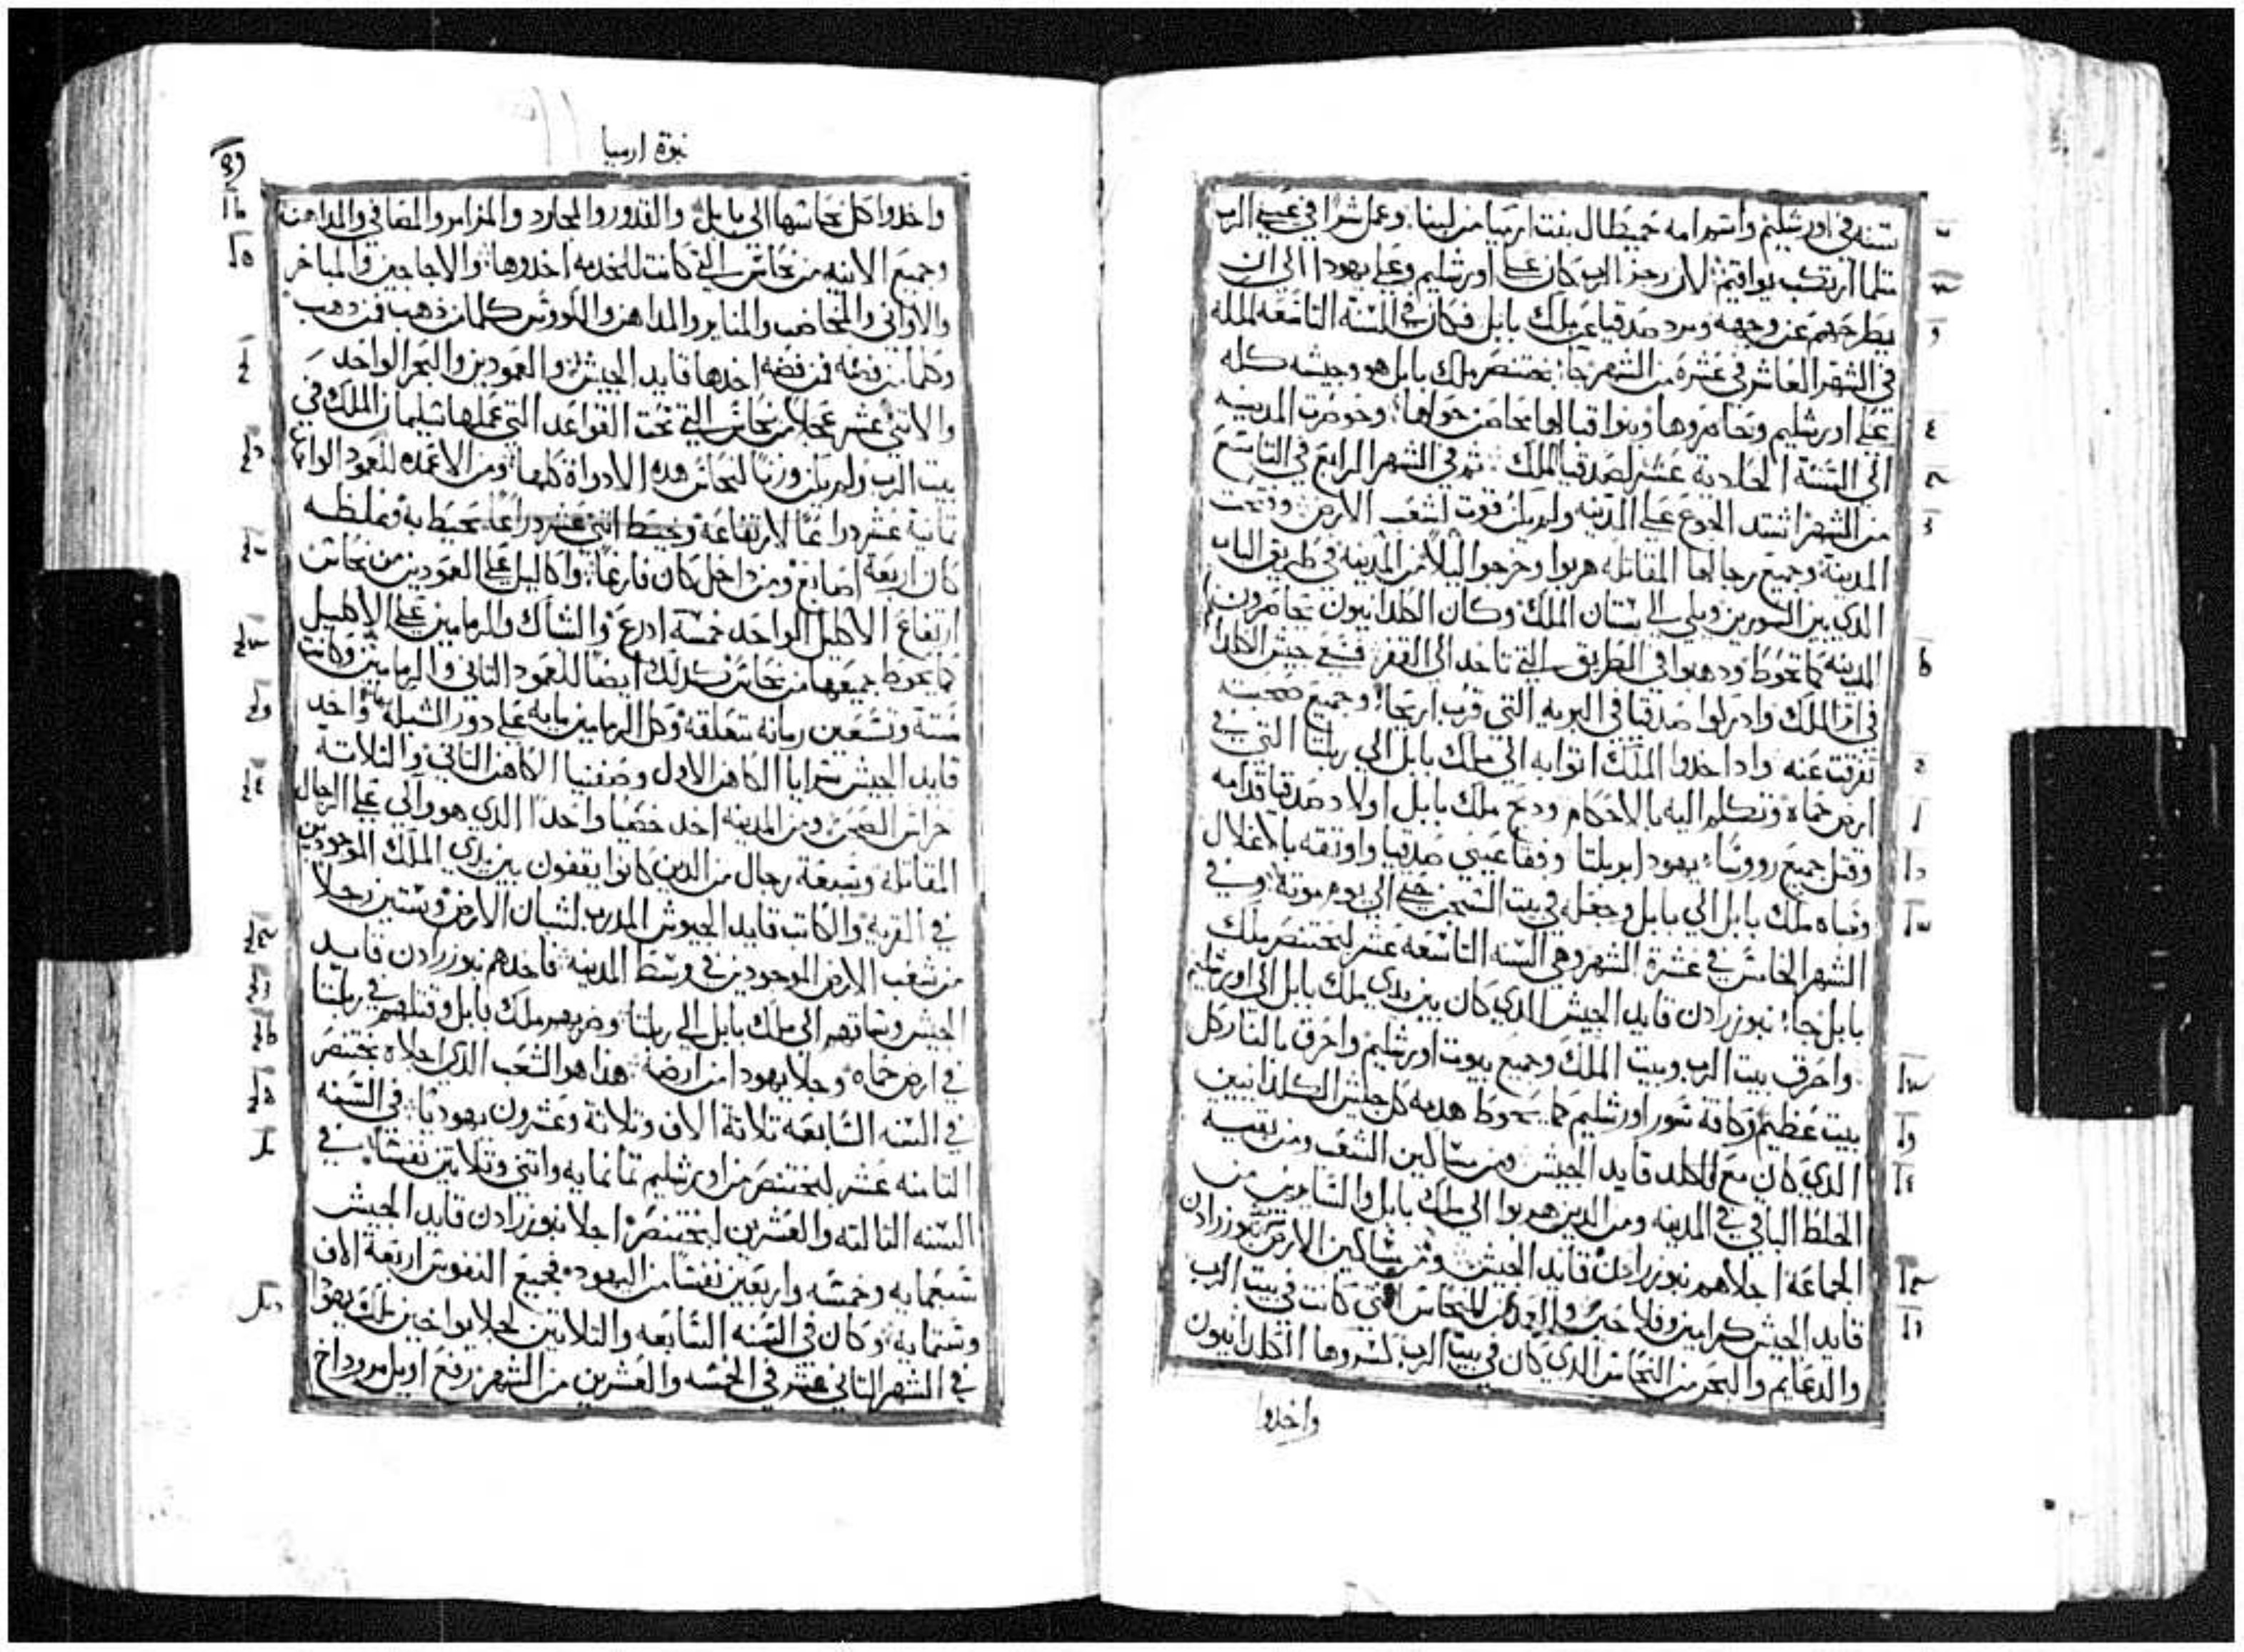 سنه في اورشليم واسم امه حميطال بنت ارميا من لبنا وعمل شرا في عيني الرب
مثلما ارتكب يواقيم لان رجز الرب كان على اورشليم وعلى يهودا الى ان
يطرحهم عن وجهه ومرد صدقيا عن ملك بابل فكان في السنه التاسعه لملكه
في الشهر العاشر في عشرة من الشهر جاء بختنصر ملك بابل هو وجيشه كله
على اورشليم وحاصروها وبنوا قبالها محاصن حولها وحوصرت المدينه
الى السنة الحادية عشر لصدقيا الملك ثم في الشهر الرابع في التاسع
من الشهر اشتد الجوع على المدينه ولم يكن قوت لشعب الارض وفتحت
المدينة وجميع رجالها المقاتله هربوا وخرجوا ليلا من المدينه في طريق الباب
الدي بين السورين ويلي الى بستان الملك وكان الكلدانيون يحاصرون
المدينه كما تحوط ودهبوا في الطريق التي تاخد الى القفر فسعى جيش الكلدا
في اثر الملك وادركوا صدقيا في البريه التي قرب اريحا وجميع صحبته
تفرقت عنه وادا اخدوا الملك اتوا به الى ملك بابل الى ربلتا التي في
ارض حماه وتكلم اليه بالاحكام ودبح ملك بابل اولاد صدقيا قدامه
وقتل جميع رووساء يهودا بربلتا وفقا عيني صدقيا واوثقه بالاغلال
وساه ملك بابل الى بابل وجعله في بيت السجن حتى الى يوم موته وفي
الشهر الخامس في عشرة الشهر وهي السنه التاسعه عشر لبختنصر ملك
بابل جاء نبوزرادن قايد الجيش الدي كان بين يدي ملك بابل الى اورشليم
واحرق بيت الرب وبيت الملك وجميع بيوت اورشليم واحرق بالنار كل
بيت عظيم وكافة سور اورشليم كما يحوط هدمه كل جيش الكلدانيين
الدي كان مع قايد الجيش ومن مساكين الشعب ومن بقيه
الخلط الباقي في المدينه ومن الدين هربوا الى ملك بابل والسايرين من
الجماعة اجلاهم نبوزرادن قايد الجيش ومن مساكين الارض نبوزرادن
قايد الجيش كرامين وفلاحين النحاس التي كانت في بيت الرب
والدعايم والبحر من النحاس الدي كان في بيت الرب كسروها الكلدانيون
واخدوا
نبوة ارميا
واخدوا كل نحاسها الى بابل والقدور والمجارد والمزامر والمصافي والمداهن
وجميع الانيه من نحاس التي كانت للخدمه اخدوها والاجاجين والمباخر
والاواني والمخاضب والمناير والمداهن والكووس كلما من دهب فمن دهب
وكلما من فضه فمن فضه اخدها قايد الجيش والعمودين والبحر الواحد
والاثني عشر عجلا من نحاس التي تحت القواعد التي عملها سليمان الملك في
بيت الرب ولم يكن وزنا لنحاس هده الادواة كلها ومن الاعمده للعمود الواحد
ثمانية عشر دراعا لارتفاعة وخيط اثني عشر دراعا يحيط به وغلظه
كان اربعة اصابع ومن داخل كان فارغا واكاليل على العمودين من نحاس
ارتفاع الاكليل الواحد خمسة ادرع والشباك والرمامين على الاكليل
كما يحوط جميعها من نحاس كدلك ايضا للعمود التاني والرمامين وكانت
ستة وتسعين رمانة متعلقة وكل الرمامين مايه على دور الشبكه واخد
قايد الجيش سرايا الكاهن الاول وصفنيا الكاهن التاني والتلاتة
حراس الصحن ومن المدينه اخد خصيا واحدا الدي هو والي على الرجال
المقاتلة وسبعة رجال من الدين كانوا يقفون بين يدي الملك الموجودين
في القرية والكاتب قايد الجيوش المدرب لشبان الارض وستين رجلا
من شعب الارض الموجودين في وسط المدينه فاخدهم نبوزرادن قايد
الجيش وساقهم الى ملك بابل الى ربلتا وضربهم ملك بابل وقتلهم في ربلتا
في ارض حماه وجلا يهودا من ارضه هذا هو الشعب الدي اجلاه بختنصر
في السنه السابعه تلاتة الاف وتلاتة وعشرون يهوديا في السنه
التامنه عشر لبختنصر من اورشليم تمانمايه واتني وتلاتين نفسا في
السنه التالته والعشرين لبختنصر اجلا نبوزرادن قايد الجيش
سبعمايه وخمسه واربعين نفسا من اليهود فجميع النفوس اربعة الاف
وستمايه وكان في السنه السابعه والتلاتين لجلا يواخين ملك يهودا
في الشهر التاني عشر في الخمسه والعشرين من الشهر رفع اويل مروداخ